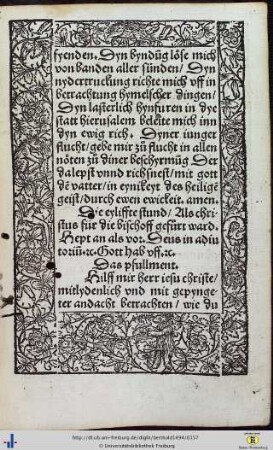 fyenden. Dyn byndūg löse mich
von banden aller sünden / Dyn
nydertruckung richte mich vff in
betrachtung hymelscher dingen /
Dyn lasterlich hynfuren in dye
statt hierusalem beleite mich inn
dyn ewig rich. Dyner iunger
flucht / gebe mir zů flucht in allen
nöten zů diner beschyrmūg Der
da lepst vnnd richsnest / mit gott
dē vatter / in eynikeyt des heiligē
geist / durch ewen ewickeit. amen.
Die eylffte stund / Als chri
stus für die bischoff gefürt ward.
Hept an als vor. Deus in adiu
toriū. ⁊c. Gott hab vff. ⁊c.
Das psullment.
Hilff mir herr iesu christe /
mitlydenlich vnd mit gepynge-
ter andacht betrachten / wie du
http://dl.ub.uni-freiburg.de/diglit/berthold1494/0157
© Universitätsbibliothek Freiburg